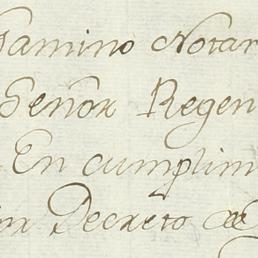 Gamino Notar
Señor Regen
En cumplim
or Decreto de